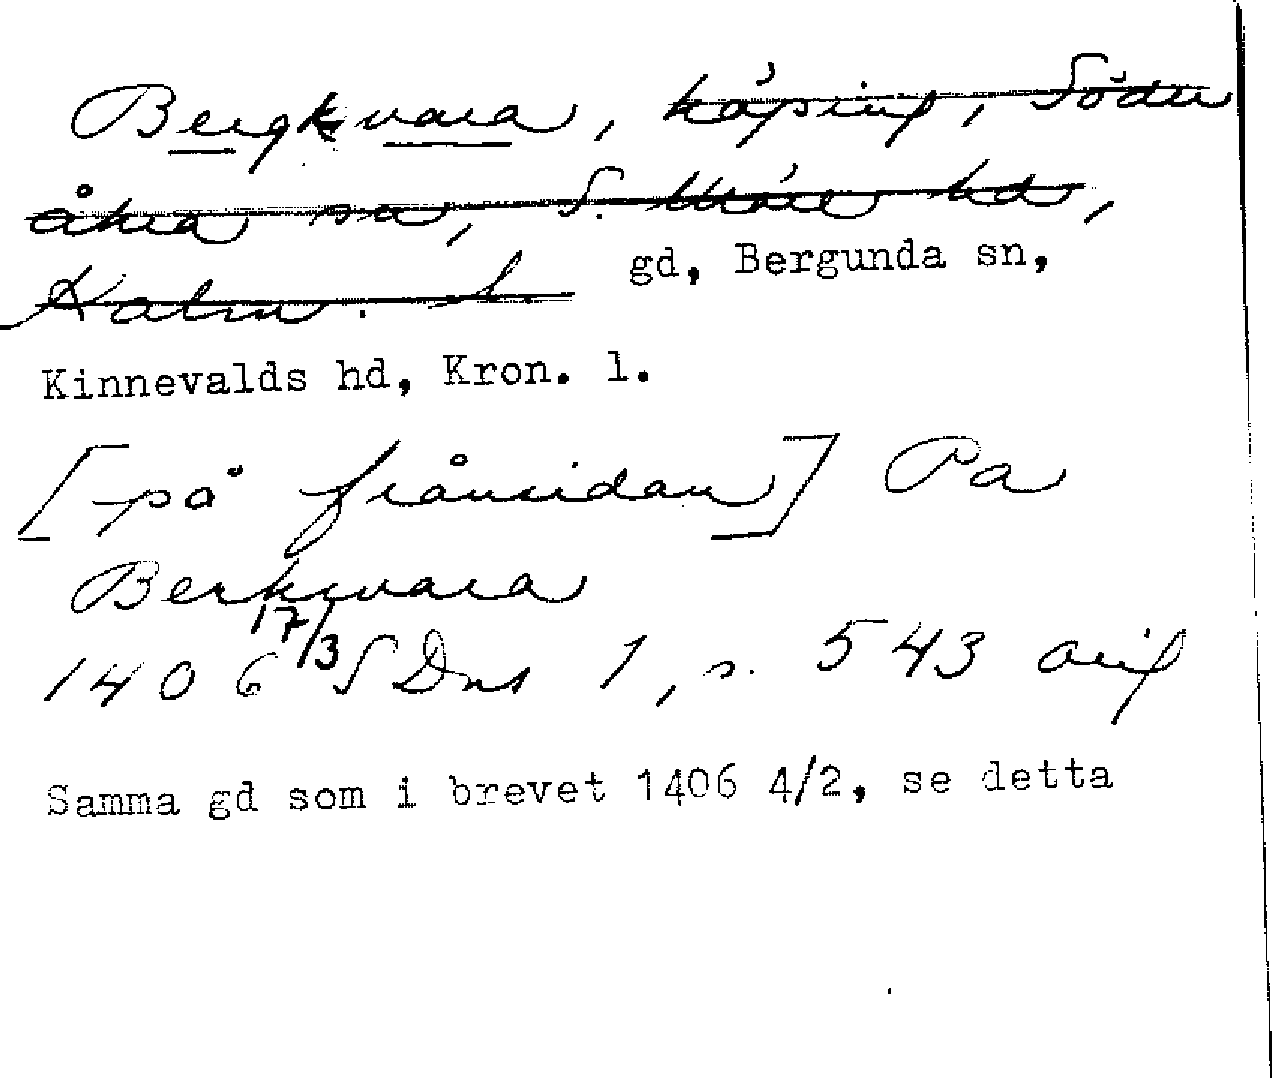 Bergkvara, köping, Söder
åkra sn, S. Möre hd,
Kalm. l gd, Bergunda sn,
Kinnevalds hd, Kron. l.
[på frånsidan] Pa
Berkwara
1406 17/3 SDns 1, s. 543 orig
Samma gd som i brevet 1406 4/2, se detta